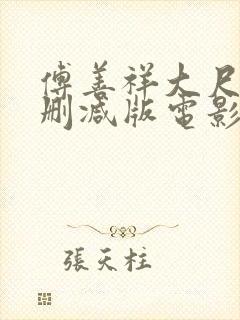 傅善祥大尺
删减版電影
張天柱